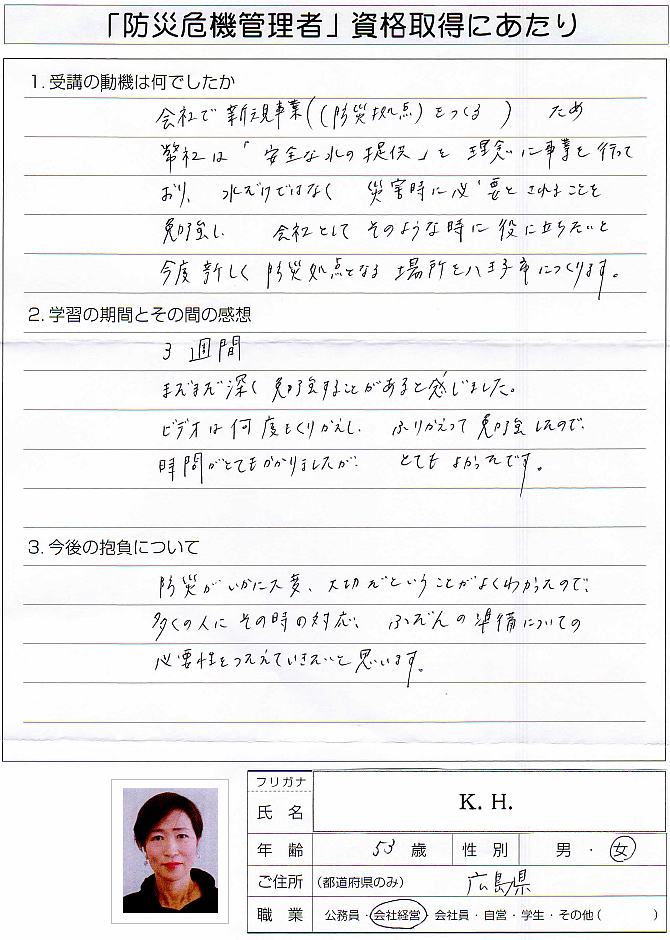 「防災危機管理者」資格取得にあたり
1. 受講の動機は何でしたか
会社で新規事業((防災拠点)をつくる ) ため
弊社は「安全な水の提供」を理念に事業を行って
おり、水だけではなく 災害時に必要とされることを
勉強し 会社としてそのような時に役に立ちたいと
今度新しく防災拠点となる場所を八王子市につくります。
2. 学習の期間とその間の感想
3 週間
まだまだ深く勉強することがあると感じました。
ビデオは何度もくりかえし ふりかえって勉強したので、
時間がとてもかかりましたが とてもよかったです。
3. 今後の抱負について
防災がいかに大変、大切だということがよくわかったので、
多くの人にその時の対応、ふだんの準備についての
必要性をつたえていきたいと思います。
フリガナ
氏 名 K. H.
年 齢 53 歳 性 別 男 ・ 女
ご住所 (都道府県のみ) 広島県
職 業 公務員・会社経営・会社員・自営・学生・その他 ( )